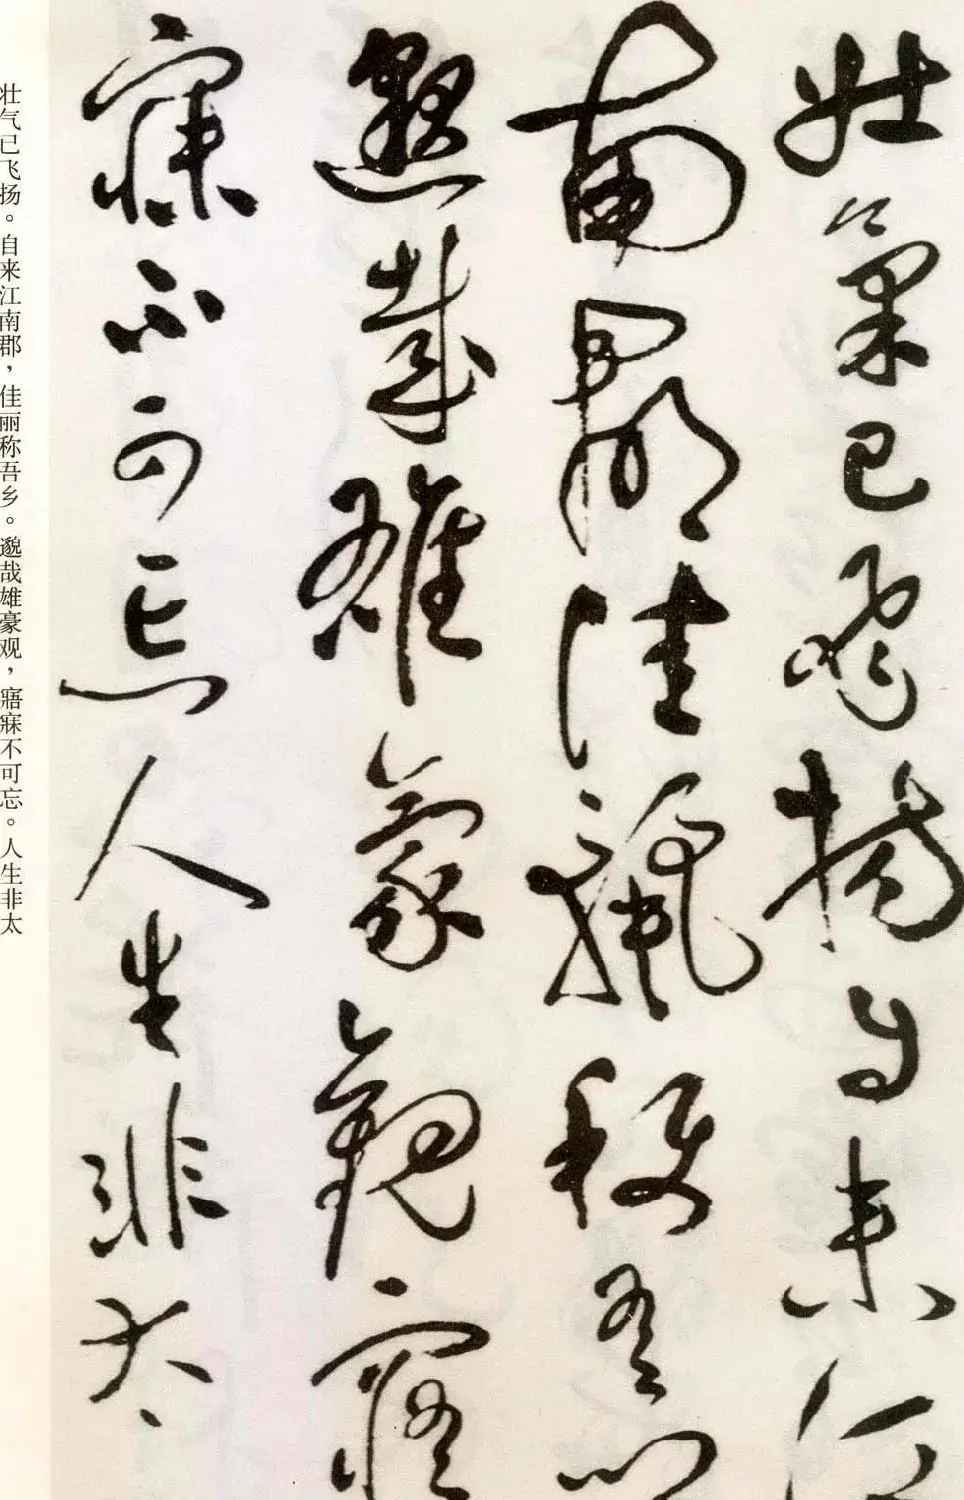 壯氣已飛揚自来江
南郡佳麗稱吾鄉
邈哉雄豪觀寤
寐不可忘人生非太
壮气已飞扬。自来江南郡，佳丽称吾乡。邈哉雄豪观，寤寐不可忘。人生非太